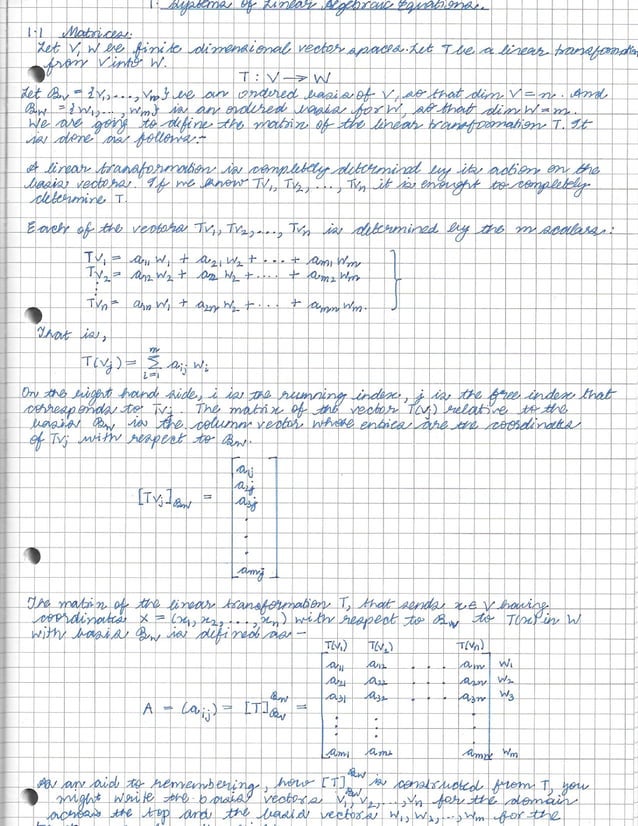 1. Systems of Linear Algebraic Equations.
1.1 Matrices:
Let V, W be finite dimensional vector spaces. Let T be a linear transformation
from V into W.
T : V → W
Let B_V = {v₁, ..., vₙ} be an ordered basis of V, so that dim V = n. And
B_W = {w₁, ..., wₘ} is an ordered basis for W, so that dim W = m.
We are going to define the matrix of the linear transformation T. It
is done as follows:-
A linear transformation is completely determined by its action on the
basis vectors. If we know Tv₁, Tv₂, ..., Tvₙ it is enought to completely
determine T.
Each of the vectors Tv₁, Tv₂, ..., Tvₙ is determined by the m scalars:
Tv₁ = a₁₁ w₁ + a₂₁ w₂ + ... + aₘ₁ wₘ
Tv₂ = a₁₂ w₂ + a₂₂ w₂ + .... + aₘ₂ wₘ
⋮
Tvₙ = a₁ₙ w₁ + a₂ₙ w₂ + ... + aₘₙ wₘ.
That is,
T(vⱼ) = Σᵢ₌₁ᵐ aᵢⱼ wᵢ
On the right hand side, i is the running index, j is the free index that
corresponds to Tvⱼ. The matrix of the vector T(vⱼ) relative to the
basis B_W is the column vector whose entries are the coordinates
of Tvⱼ with respect to B_W.
a₁ⱼ
a₂ⱼ
[Tvⱼ]_B_W = a₃ⱼ
.
.
.
aₘⱼ
The matrix of the linear transformation T, that sends x ∈ V having
coordinates x = (x₁, x₂, ..., xₙ) with respect to B_V to T(x) in W
with basis B_W is defined as -
T(v₁) T(v₂) T(vₙ)
a₁₁ a₁₂ . . . a₁ₙ w₁
a₂₁ a₂₂ . . . a₂ₙ w₂
a₃₁ a₃₂ . . . a₃ₙ w₃
A = (aᵢⱼ) = [T]_B_V^B_W =
⋮ ⋮ ⋮
aₘ₁ aₘ₂ aₘₙ wₘ
As an aid to remembering, how [T]_B_V^B_W is constructed from T, you
might write the basis vectors v₁, v₂, ..., vₙ for the domain
across the top and the basis vectors w₁, w₂, ..., wₘ for the